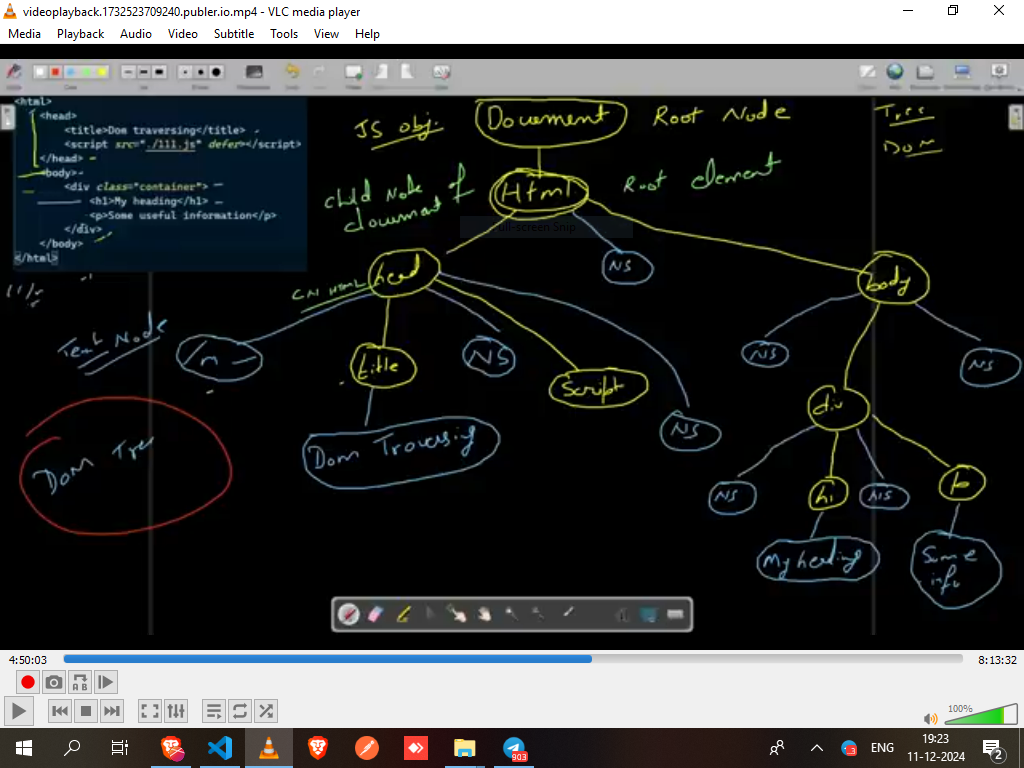 videoplayback.1732523709240.publer.io.mp4 - VLC media player
Media Playback Audio Video Subtitle Tools View Help
<html>
<head>
<title>Dom traversing</title>
<script src="./111.js" defer></script>
</head>
<body>
<div class="container">
<h1>My heading</h1>
<p>Some useful information</p>
</div>
</body>
</html>
JS obj.
Document
Root Node
Tree
DOM
child Node of
document
Html
Root element
NS
head
CN HTML
body
Text Node
\n
title
NS
Script
NS
NS
NS
Dom Traversing
NS
div
Dom Tree
NS
h1
NS
p
My heading
Some
info
4:50:03
8:13:32
100%
ENG
19:23
11-12-2024
903
3
2